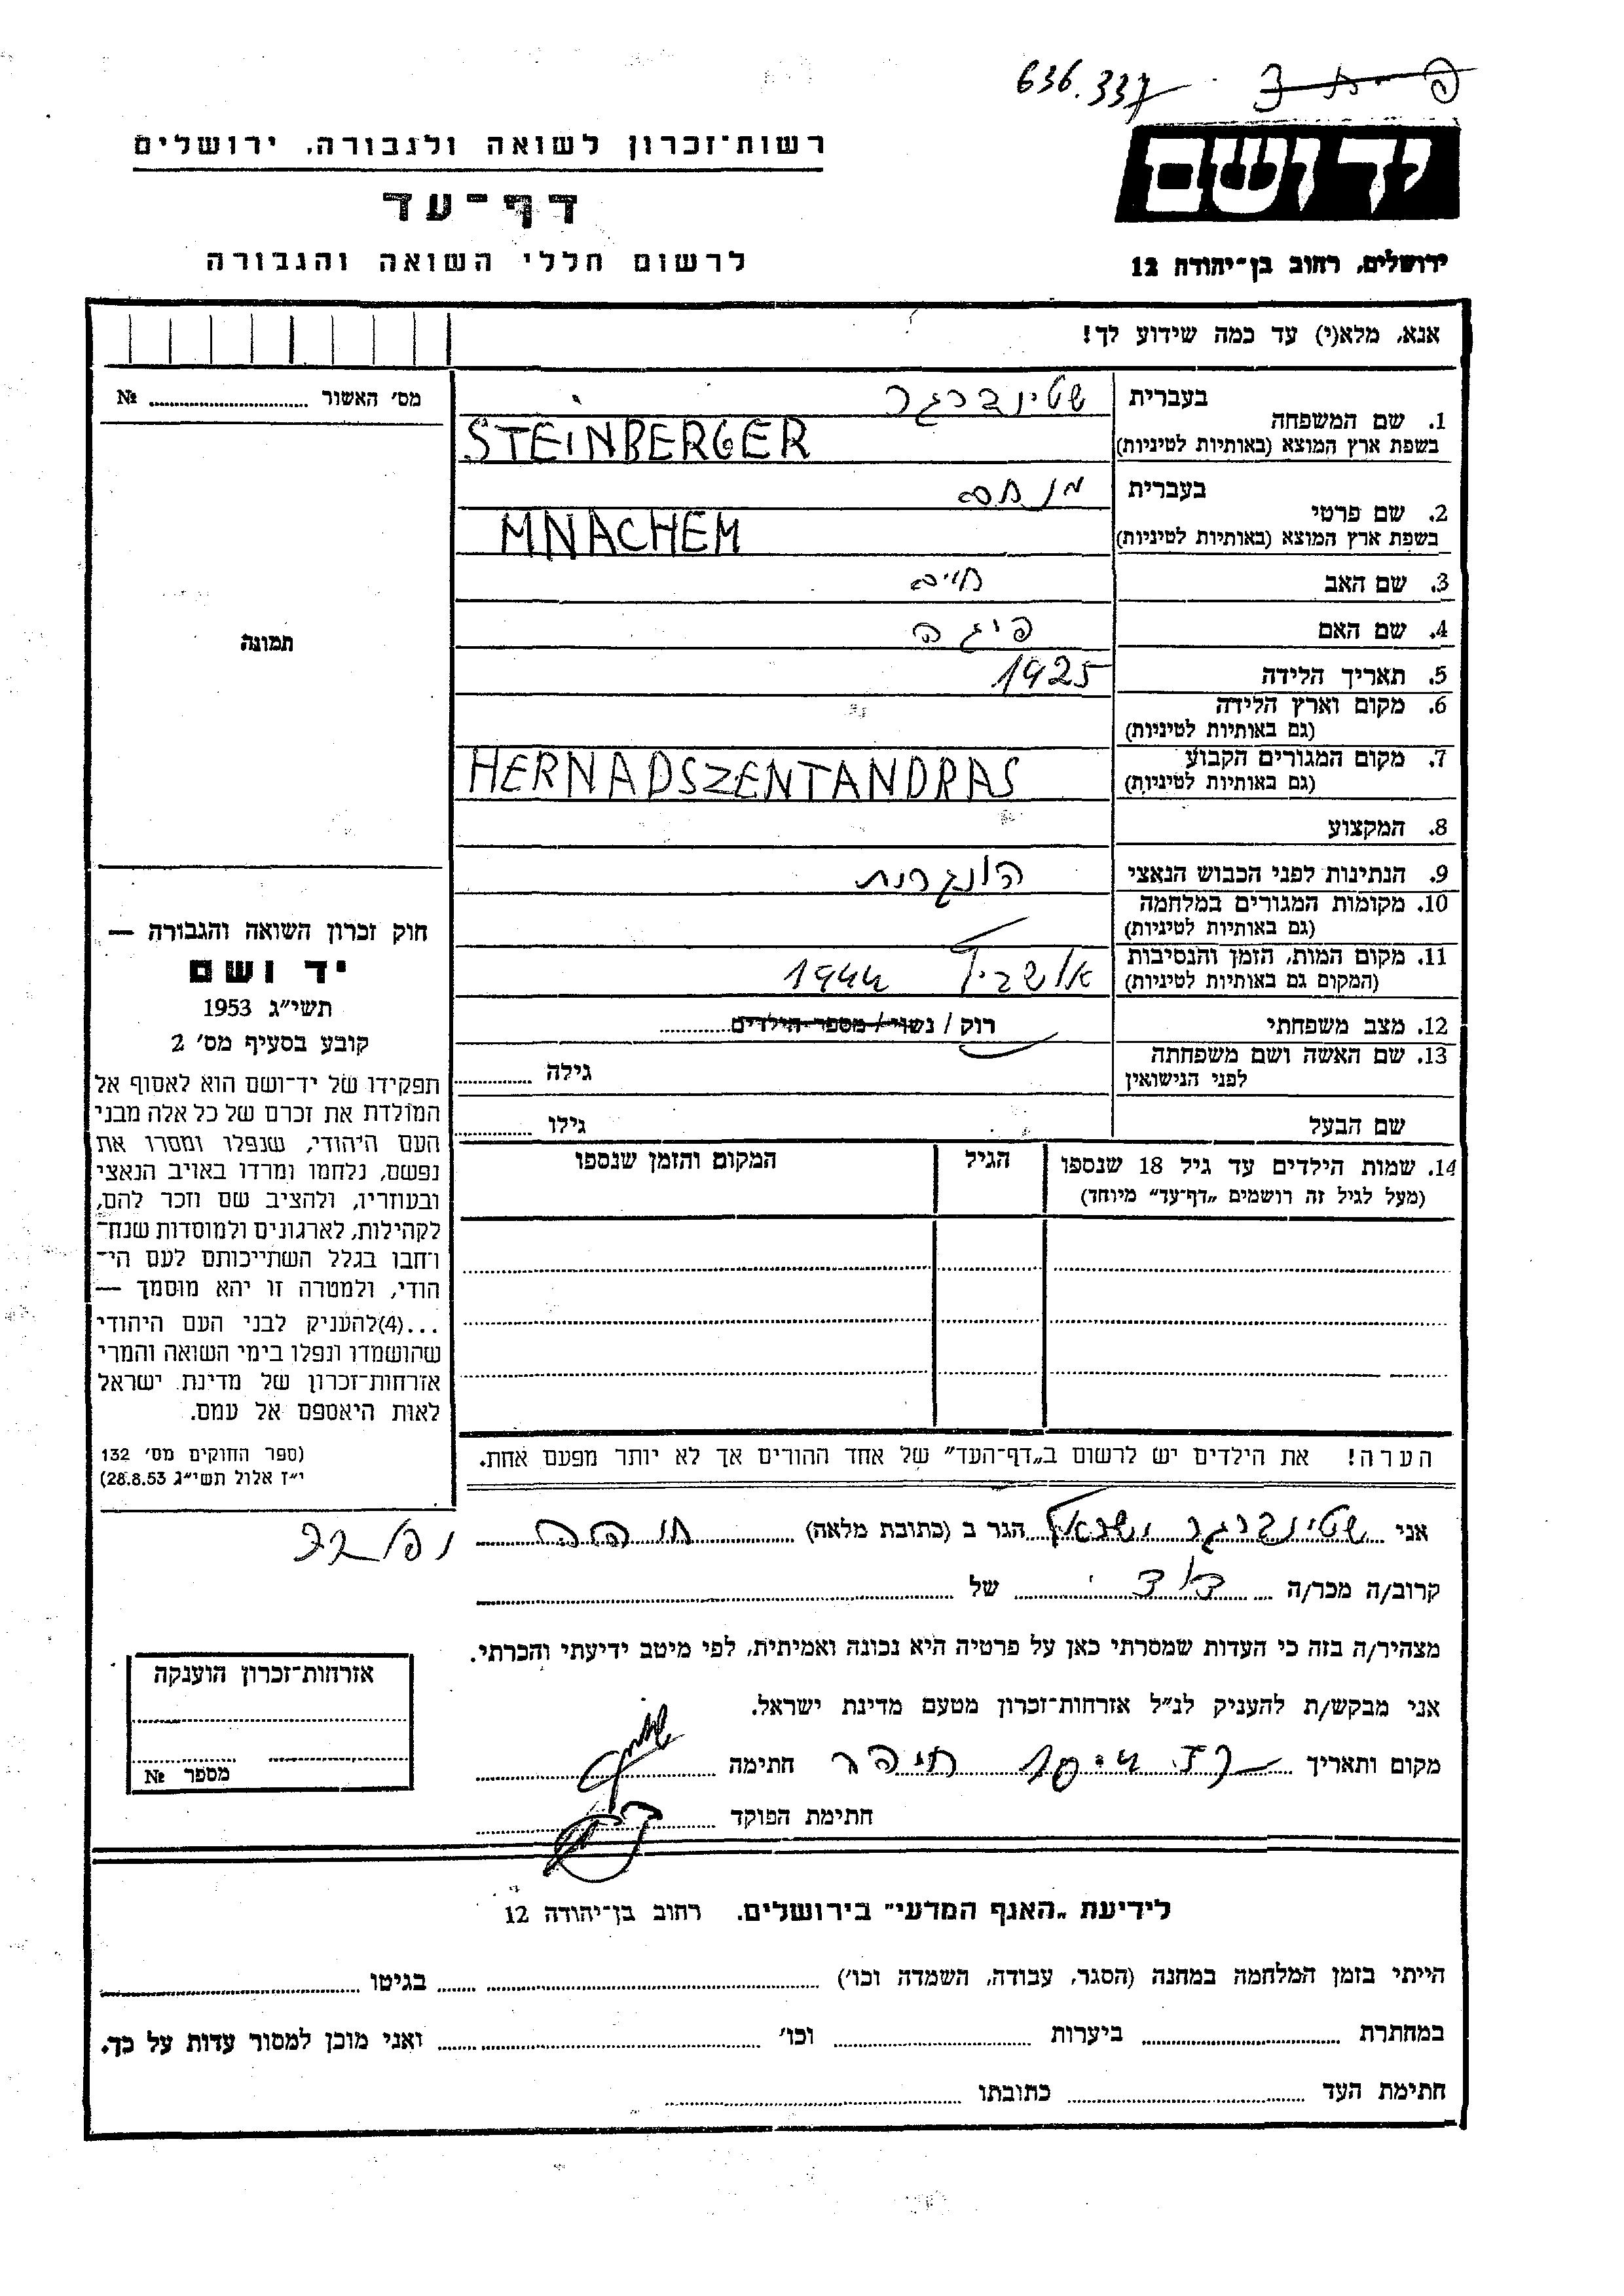 636.337
יד ושם
רשות־זכרון לשואה ולגבורה, ירושלים
דף־עד
לרשום חללי השואה והגבורה
ירושלים, רחוב בן־יהודה 12
אנא, מלא(י) עד כמה שידוע לך!
מס׳ האשור № ........
1. שם המשפחה
בעברית שטינברגר
בשפת ארץ המוצא (באותיות לטיניות) STEINBERGER
2. שם פרטי
בעברית מנחם
בשפת ארץ המוצא (באותיות לטיניות) MNACHEM
3. שם האב חיים
4. שם האם פיגה
תמונה
5. תאריך הלידה 1925
6. מקום וארץ הלידה
(גם באותיות לטיניות)
7. מקום המגורים הקבוע HERNADSZENTANDRAS
(גם באותיות לטיניות)
8. המקצוע
9. הנתינות לפני הכבוש הנאצי הונגרית
10. מקומות המגורים במלחמה
(גם באותיות לטיניות)
11. מקום המות, הזמן והנסיבות 1944
(המקום גם באותיות לטיניות)
12. מצב משפחתי רוק / נשוי / מספר הילדים ........
13. שם האשה ושם משפחתה
לפני הנישואין
גילה ........
שם הבעל גילו ........
14. שמות הילדים עד גיל 18 שנספו
(מעל לגיל זה רושמים „דף־עד” מיוחד)
הגיל
המקום והזמן שנספו
חוק זכרון השואה והגבורה —
יד ושם
תשי״ג 1953
קובע בסעיף מס׳ 2
תפקידו של יד־ושם הוא לאסוף אל
המולדת את זכרם של כל אלה מבני
העם היהודי, שנפלו ומסרו את
נפשם, נלחמו ומרדו באויב הנאצי
ובעוזריו, ולהציב שם וזכר להם,
לקהילות, לארגונים ולמוסדות שנח־
רחבו בגלל השתייכותם לעם הי־
הודי, ולמטרה זו יהא מוסמך —
...(4)להעניק לבני העם היהודי
שהושמדו ונפלו בימי השואה והמרי
אזרחות־זכרון של מדינת ישראל
לאות היאספם אל עמם.
(ספר החוקים מס׳ 132
י״ז אלול תשי״ג 28.8.53)
הערה! את הילדים יש לרשום ב„דף־העד” של אחד ההורים אך לא יותר מפעם אחת.
אני שטינברגר ישראל הגר ב (כתובת מלאה)
קרוב/ה מכר/ה דוד של ........
מצהיר/ה בזה כי העדות שמסרתי כאן על פרטיה היא נכונה ואמיתית, לפי מיטב ידיעתי והכרתי.
אני מבקש/ת להעניק לנ״ל אזרחות־זכרון מטעם מדינת ישראל.
מקום ותאריך חתימה
חתימת הפוקד
אזרחות־זכרון הוענקה
מספר №
לידיעת „האגף המדעי” בירושלים. רחוב בן־יהודה 12
הייתי בזמן המלחמה במחנה (הסגר, עבודה, השמדה וכו׳) ........ בגיטו ........
במחתרת ........ ביערות ........ וכו׳ ........ ואני מוכן למסור עדות על כך.
חתימת העד ........ כתובתו ........